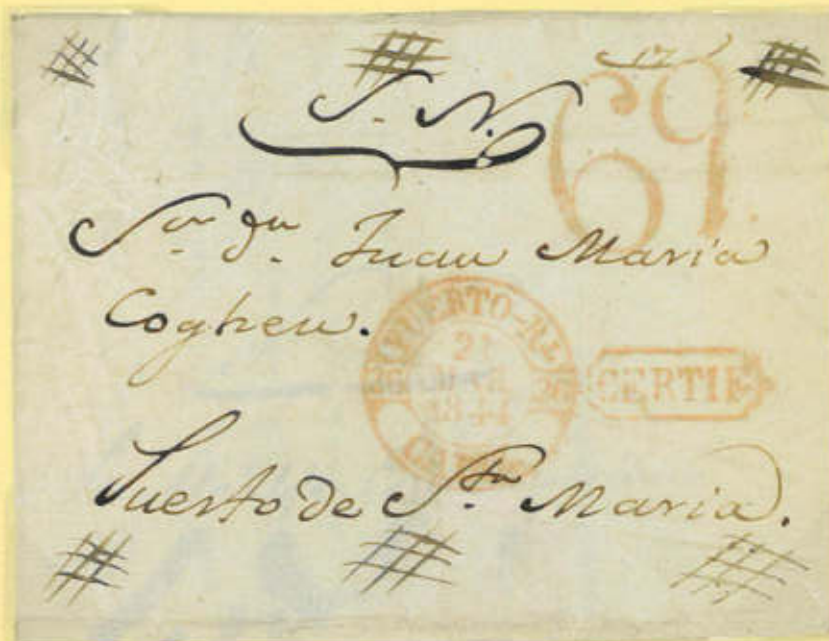 S. N.
69
Sor. dn. Juan Maria
Coghen.
PUERTO-RL
21
1844
CADIZ
CERTIF
Puerto de Sta. Maria.